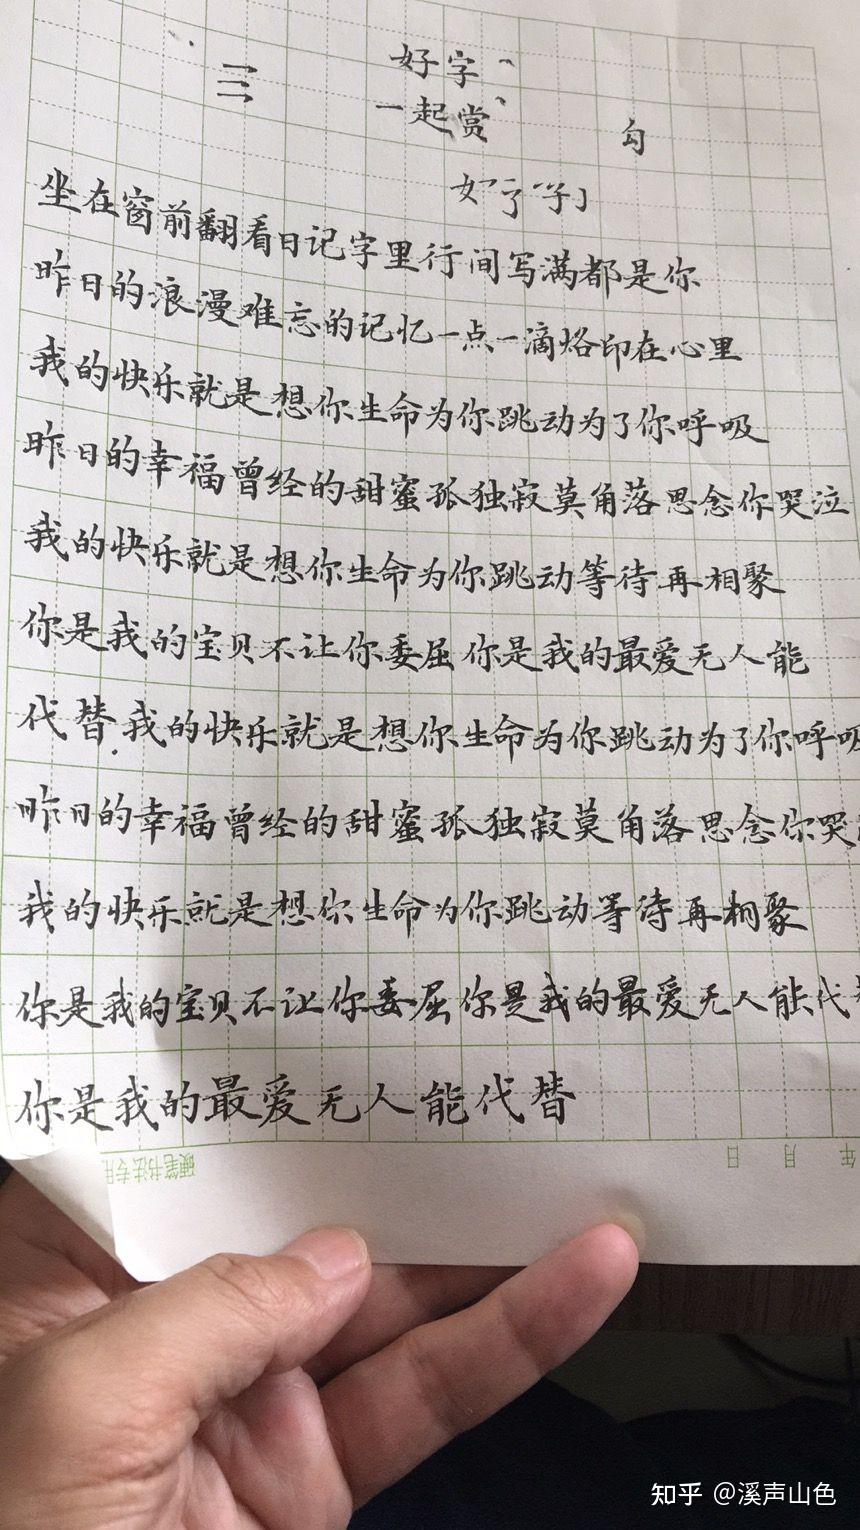 三
好字
一起赏
勾
坐在窗前翻看日记字里行间写满都是你
昨日的浪漫难忘的记忆一点一滴烙印在心里
我的快乐就是想你生命为你跳动为了你呼吸
昨日的幸福曾经的甜蜜孤独寂莫角落思念你哭泣
我的快乐就是想你生命为你跳动等待再相聚
你是我的宝贝不让你委屈你是我的最爱无人能
代替.我的快乐就是想你生命为你跳动为了你呼吸
昨日的幸福曾经的甜蜜孤独寂莫角落思念你哭
我的快乐就是想你生命为你跳动等待再相聚
你是我的宝贝不让你委屈你是我的最爱无人能代
你是我的最爱无人能代替
硬笔书法专用
年 月 日
知乎 @溪声山色